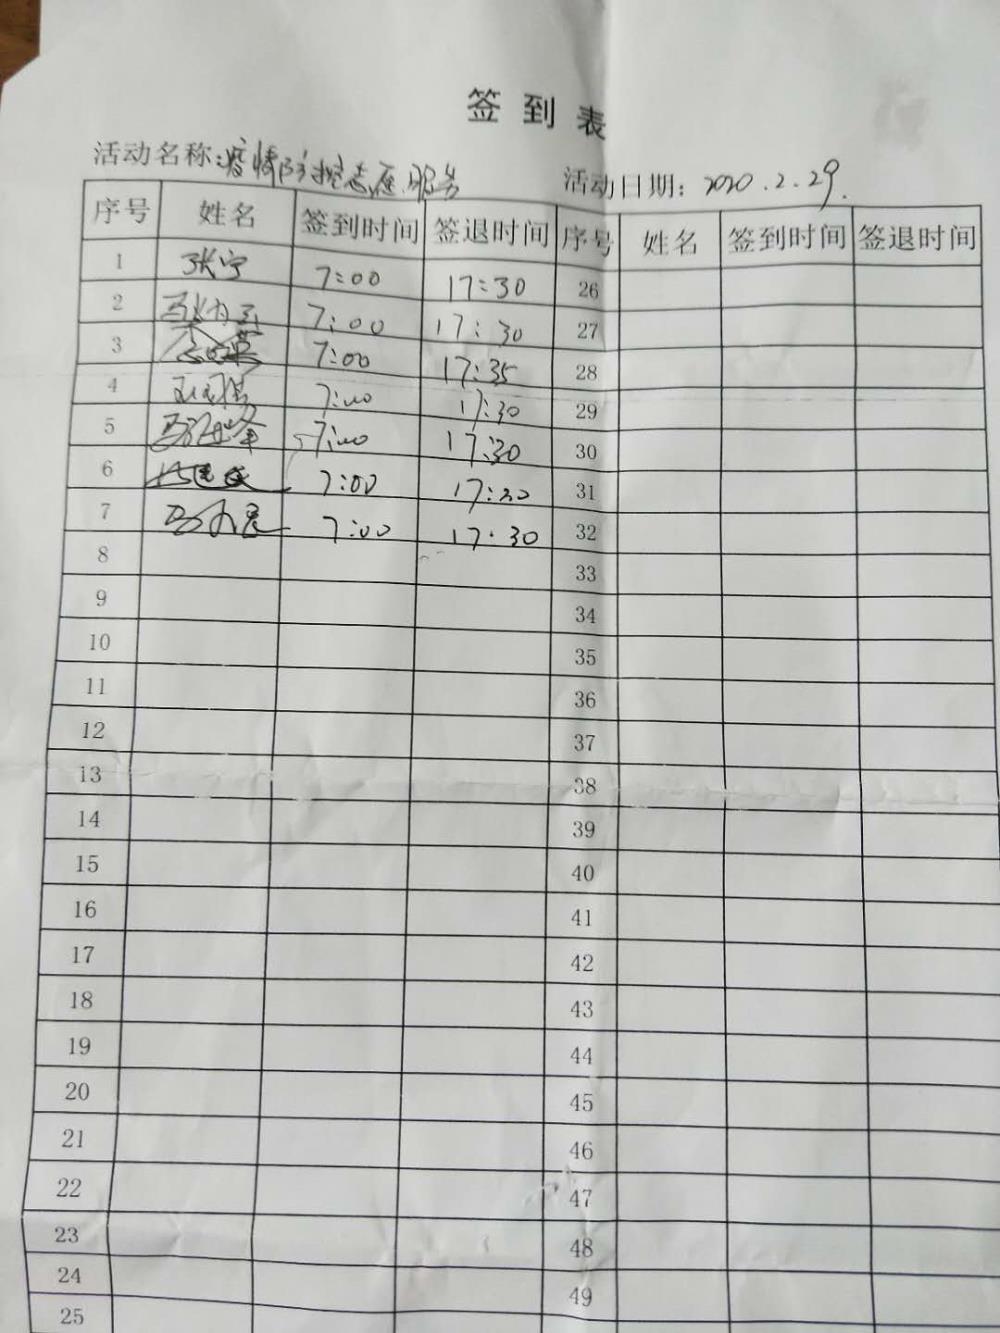 签到表
活动名称：疫情防控志愿服务 活动日期：2020.2.29.
序号 姓名 签到时间 签退时间 序号 姓名 签到时间 签退时间
1 张宁 7:00 17:30 26
2 7:00 17:30 27
3 7:00 17:35 28
4 7:00 17:30 29
5 7:00 17:30 30
6 7:00 17:30 31
7 7:00 17:30 32
8 33
9 34
10 35
11 36
12 37
13 38
14 39
15 40
16 41
17 42
18 43
19 44
20 45
21 46
22 47
23 48
24 49
25